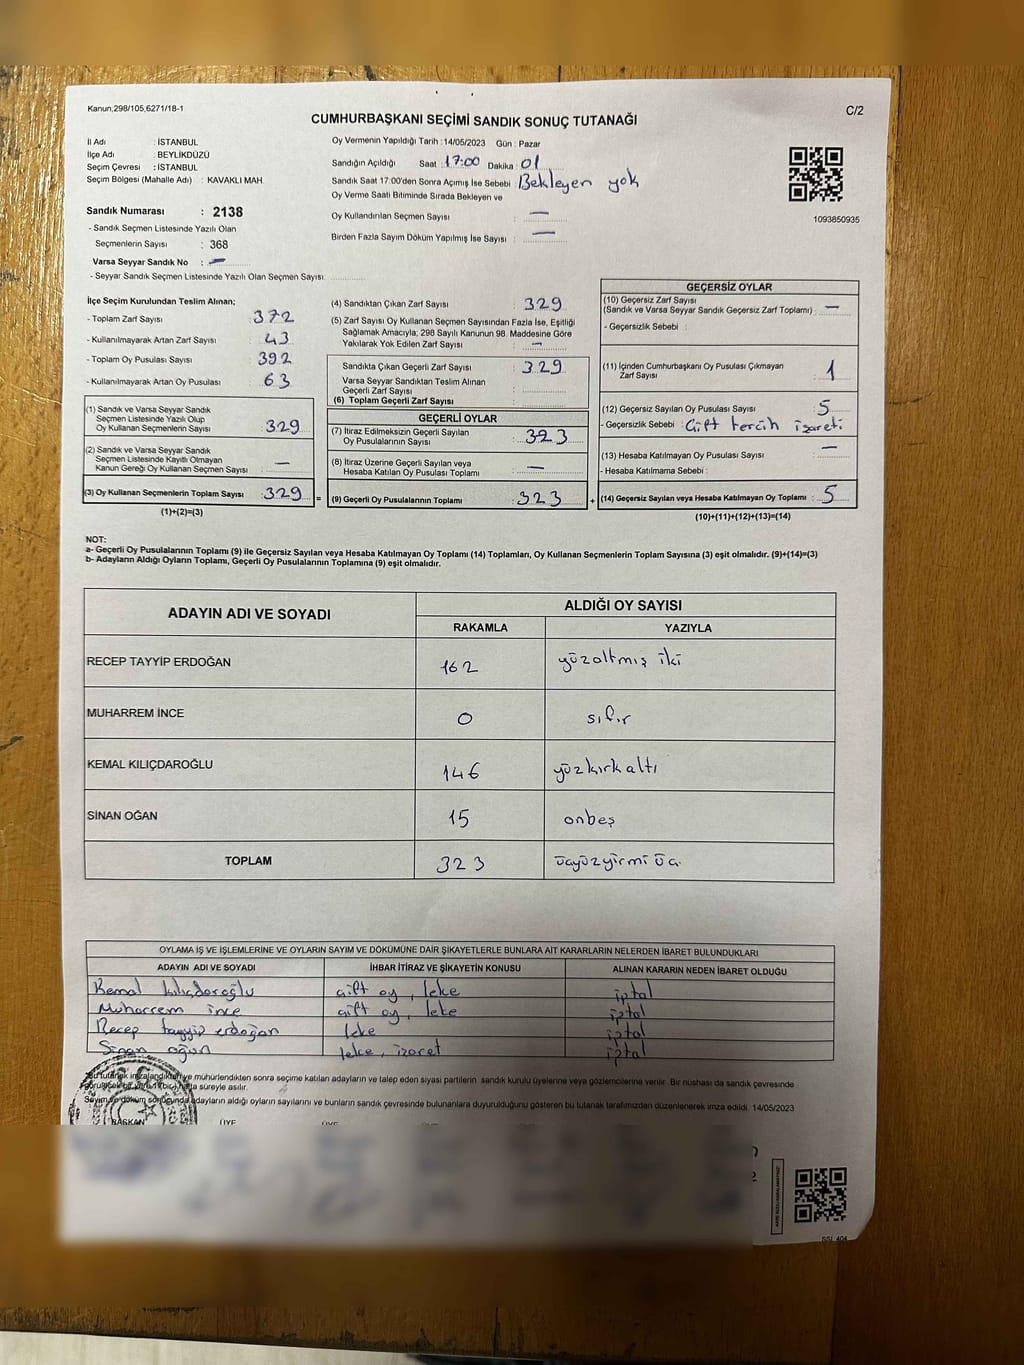 Kanun;298/105,6271/18-1
C/2
CUMHURBAŞKANI SEÇİMİ SANDIK SONUÇ TUTANAĞI
İl Adı : İSTANBUL
İlçe Adı : BEYLİKDÜZÜ
Seçim Çevresi : İSTANBUL
Seçim Bölgesi (Mahalle Adı) : KAVAKLI MAH.
Sandık Numarası : 2138
- Sandık Seçmen Listesinde Yazılı Olan
Seçmenlerin Sayısı : 368
Varsa Seyyar Sandık No : –
- Seyyar Sandık Seçmen Listesinde Yazılı Olan Seçmen Sayısı:
Oy Vermenin Yapıldığı Tarih : 14/05/2023 Gün : Pazar
Sandığın Açıldığı Saat 17:00 Dakika : 01
Sandık Saat 17:00'den Sonra Açımış İse Sebebi : Bekleyen yok
Oy Verme Saati Bitiminde Sırada Bekleyen ve
Oy Kullandırılan Seçmen Sayısı : –
Birden Fazla Sayım Döküm Yapılmış İse Sayısı : –
1093850935
İlçe Seçim Kurulundan Teslim Alınan;
- Toplam Zarf Sayısı : 372
- Kullanılmayarak Artan Zarf Sayısı : 43
- Toplam Oy Pusulası Sayısı : 392
- Kullanılmayarak Artan Oy Pusulası : 63
(1) Sandık ve Varsa Seyyar Sandık
Seçmen Listesinde Yazılı Olup
Oy Kullanan Seçmenlerin Sayısı : 329
(2) Sandık ve Varsa Seyyar Sandık
Seçmen Listesinde Kayıtlı Olmayan
Kanun Gereği Oy Kullanan Seçmen Sayısı : –
(3) Oy Kullanan Seçmenlerin Toplam Sayısı : 329 =
(1)+(2)=(3)
(4) Sandıktan Çıkan Zarf Sayısı : 329
(5) Zarf Sayısı Oy Kullanan Seçmen Sayısından Fazla İse, Eşitliği
Sağlamak Amacıyla; 298 Sayılı Kanunun 98. Maddesine Göre
Yakılarak Yok Edilen Zarf Sayısı : –
Sandıkta Çıkan Geçerli Zarf Sayısı : 329
Varsa Seyyar Sandıktan Teslim Alınan
Geçerli Zarf Sayısı :
(6) Toplam Geçerli Zarf Sayısı :
GEÇERLİ OYLAR
(7) İtiraz Edilmeksizin Geçerli Sayılan
Oy Pusulalarının Sayısı : 323
(8) İtiraz Üzerine Geçerli Sayılan veya
Hesaba Katılan Oy Pusulası Toplamı : –
(9) Geçerli Oy Pusulalarının Toplamı : 323 +
GEÇERSİZ OYLAR
(10) Geçersiz Zarf Sayısı
(Sandık ve Varsa Seyyar Sandık Geçersiz Zarf Toplamı) : –
- Geçersizlik Sebebi :
(11) İçinden Cumhurbaşkanı Oy Pusulası Çıkmayan
Zarf Sayısı : 1
(12) Geçersiz Sayılan Oy Pusulası Sayısı : 5
- Geçersizlik Sebebi : Çift tercih işareti
(13) Hesaba Katılmayan Oy Pusulası Sayısı : –
- Hesaba Katılmama Sebebi :
(14) Geçersiz Sayılan veya Hesaba Katılmayan Oy Toplamı : 5
(10)+(11)+(12)+(13)=(14)
NOT:
a- Geçerli Oy Pusulalarının Toplamı (9) ile Geçersiz Sayılan veya Hesaba Katılmayan Oy Toplamı (14) Toplamları, Oy Kullanan Seçmenlerin Toplam Sayısına (3) eşit olmalıdır. (9)+(14)=(3)
b- Adayların Aldığı Oyların Toplamı, Geçerli Oy Pusulalarının Toplamına (9) eşit olmalıdır.
ADAYIN ADI VE SOYADI ALDIĞI OY SAYISI
RAKAMLA YAZIYLA
RECEP TAYYİP ERDOĞAN 162 yüzaltmış iki
MUHARREM İNCE 0 sıfır
KEMAL KILIÇDAROĞLU 146 yüzkırkaltı
SİNAN OĞAN 15 onbeş
TOPLAM 323 üçyüzyirmi üç
OYLAMA İŞ VE İŞLEMLERİNE VE OYLARIN SAYIM VE DÖKÜMÜNE DAİR ŞİKAYETLERLE BUNLARA AİT KARARLARIN NELERDEN İBARET BULUNDUKLARI
ADAYIN ADI VE SOYADI İHBAR İTİRAZ VE ŞİKAYETİN KONUSU ALINAN KARARIN NEDEN İBARET OLDUĞU
Kemal kılıçdaroğlu çift oy, leke iptal
Muharrem ince çift oy, leke iptal
Recep tayyip erdoğan leke iptal
Sinan oğan leke, işaret iptal
Bu tutanak imzalandıktan ve mühürlendikten sonra seçime katılan adayların ve talep eden siyasi partilerin sandık kurulu üyelerine veya gözlemcilerine verilir. Bir nüshası da sandık çevresinde
süreyle asılır.
Sayım ve döküm sonucunda adayların aldığı oyların sayılarını ve bunların sandık çevresinde bulunanlara duyurulduğunu gösteren bu tutanak tarafımızdan düzenlenerek imza edildi. 14/05/2023
BAŞKAN ÜYE ÜYE
SSİ 404